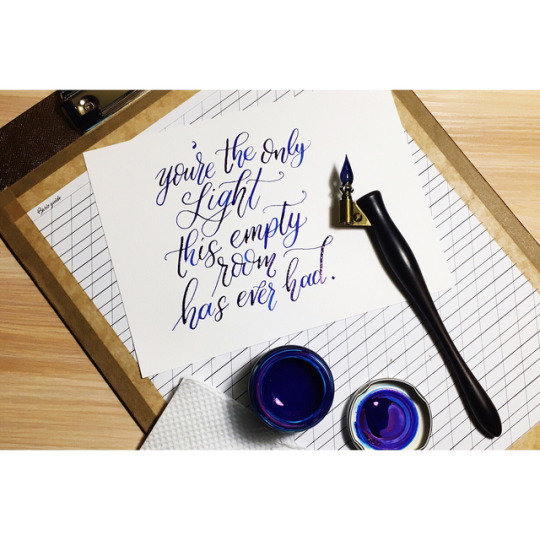 you're the only
Light
this empty
room
has ever had.